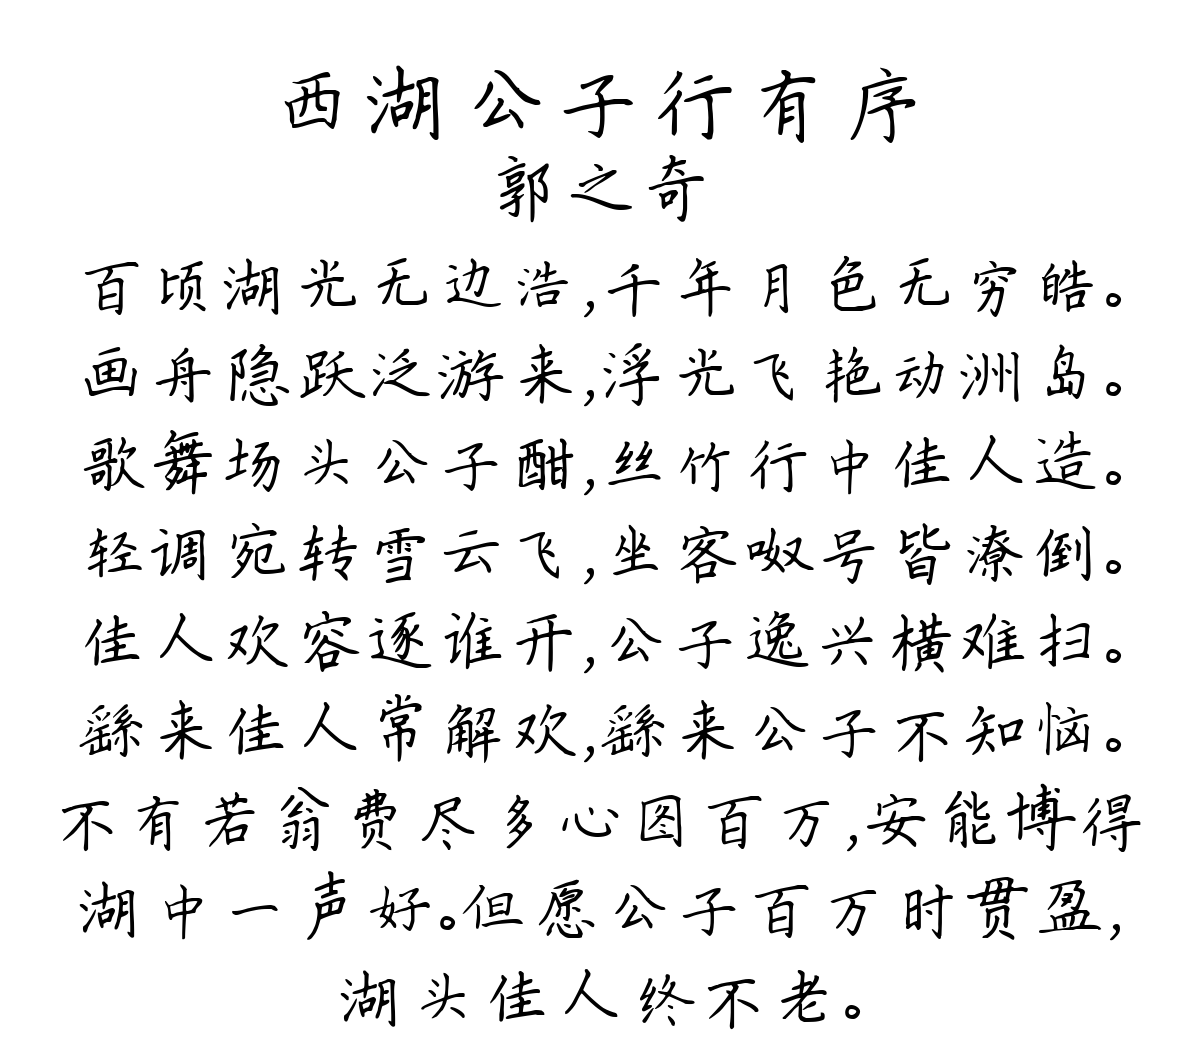 西湖公子行有序
郭之奇
百顷湖光无边浩,千年月色无穷皓。
画舟隐跃泛游来,浮光飞艳动洲岛。
歌舞场头公子酣,丝竹行中佳人造。
轻调宛转雪云飞,坐客呶号皆潦倒。
佳人欢容逐谁开,公子逸兴横难扫。
繇来佳人常解欢,繇来公子不知恼。
不有若翁费尽多心图百万,安能博得
湖中一声好。但愿公子百万时贯盈,
湖头佳人终不老。